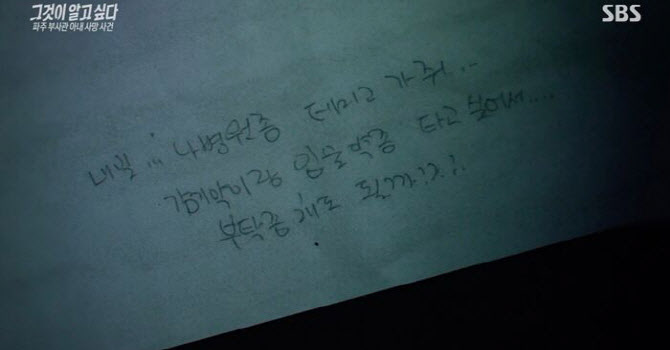 그것이 알고 싶다
파주 부사관 아내 사망 사건
SBS
내일... 나 병원좀 데리고 가줘...
감기약이랑 입술약좀 타고 싶어서....
부탁좀 해도 될까?.?.?.